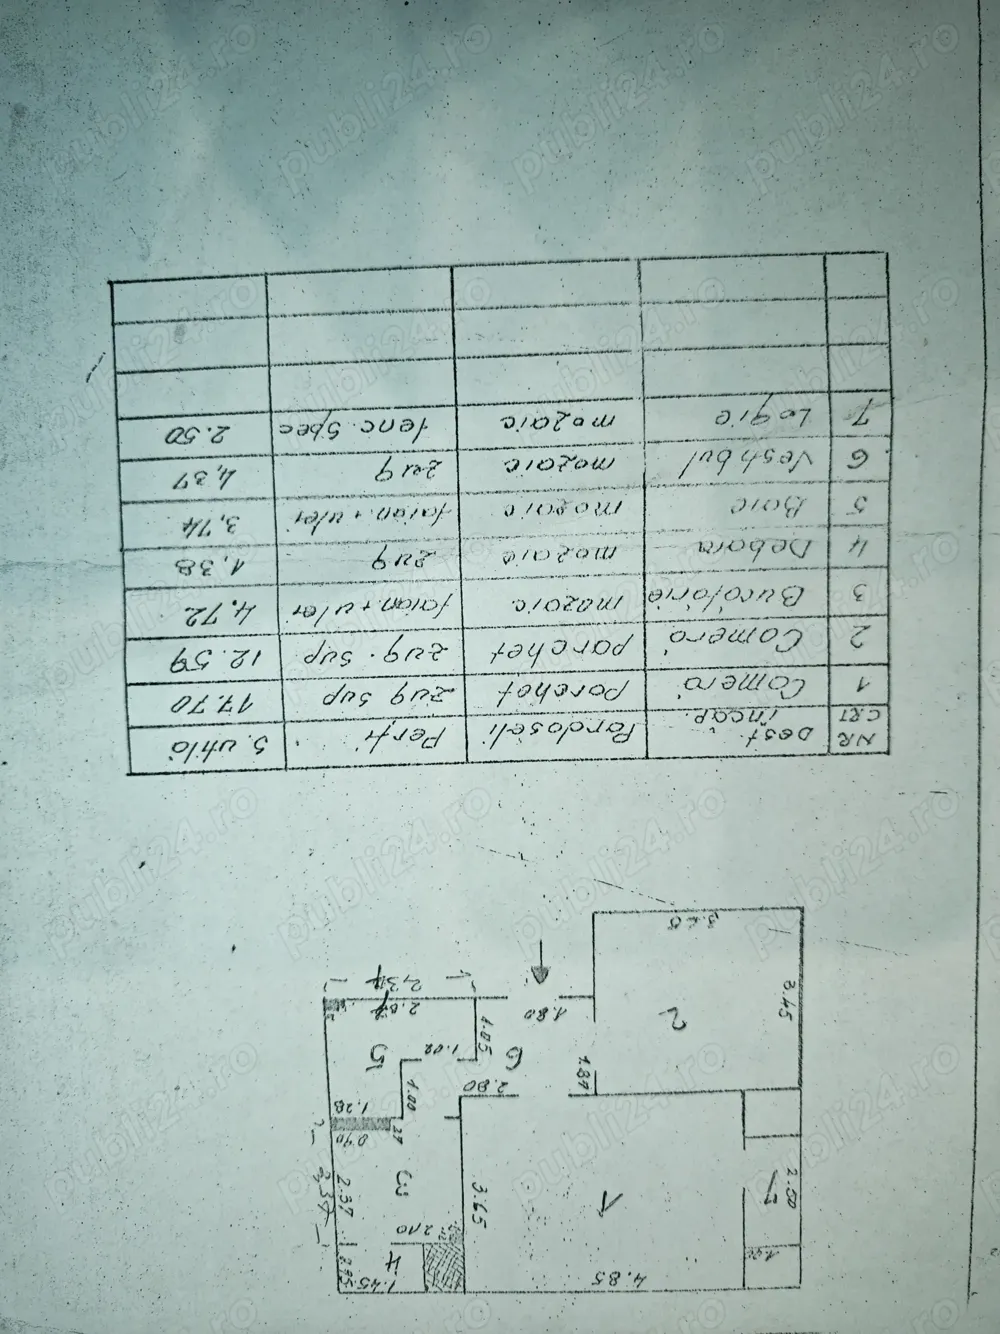 4.85
1.45
0.95
1.00
4
2.10
1
3
3.65
2.37
7
2.50
0.40
1.28
1.00
2.80
1.89
1.02
5
6
1.05
2
3.45
1.80
3.65
NR CRT Dest. incap. Pardoseli Pereți S. utilă
1 Cameră parchet zug sup 17.70
2 Cameră parchet zug. sup 12.59
3 Bucătărie mozaic faian.+ulei 4.72
4 Debara mozaic zug 1,38
5 Baie mozaic faian.+ulei 3,74
6 Vestibul mozaic zug 4,37
7 Logie mozaic tenc. spec 2.50
publi24.ro